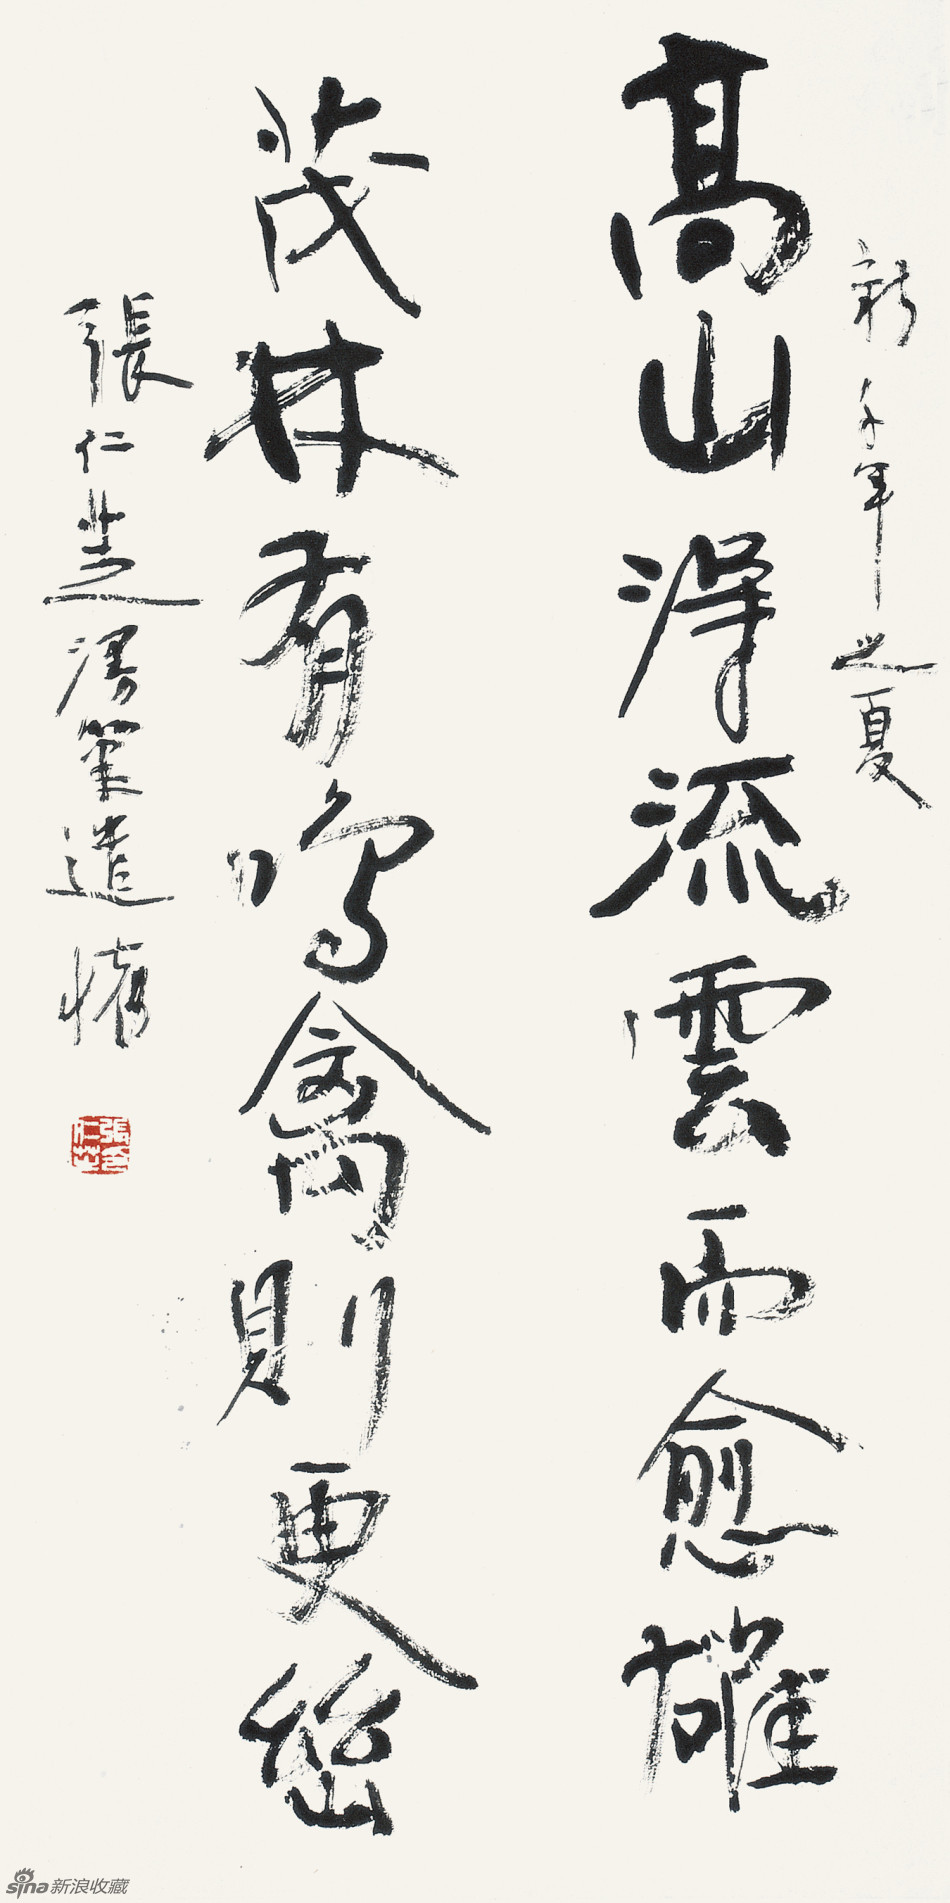 新千年之夏
高山得流雲而愈雄
茂林有鳴禽則更幽
張仁芝漫筆遣懷
張仁芝
sina新浪收藏